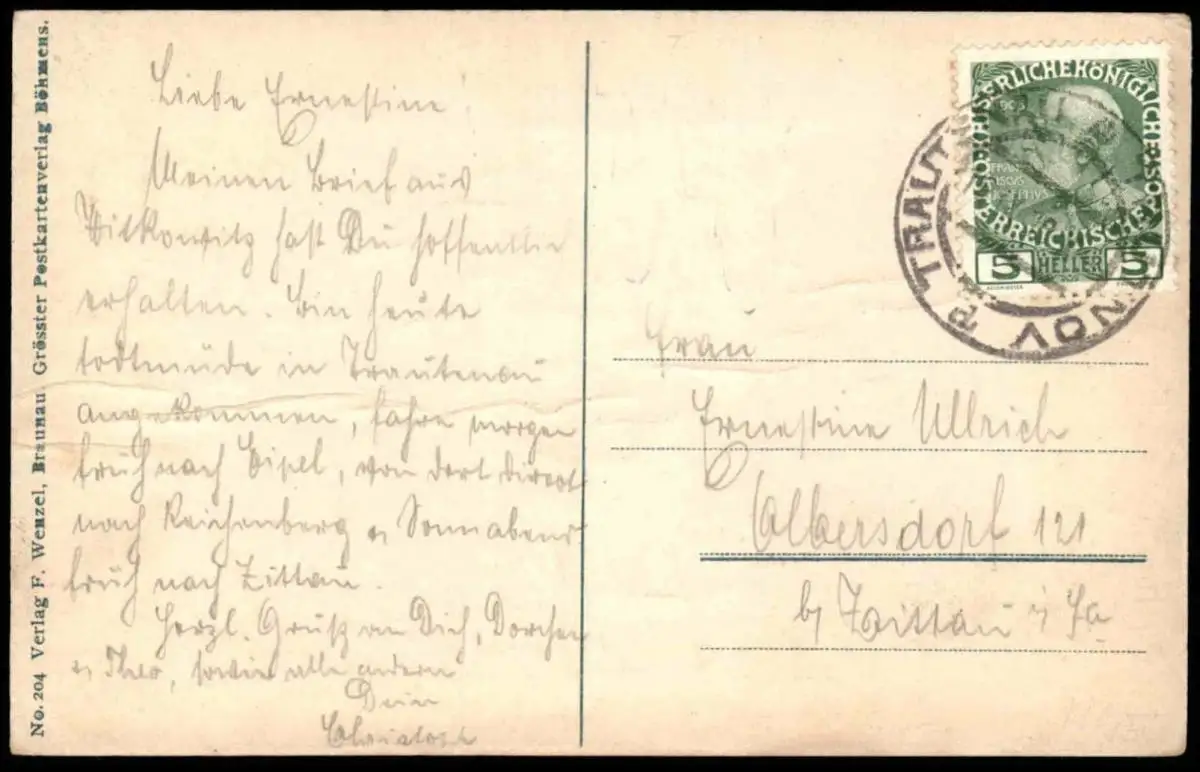 No. 204 Verlag F. Wenzel, Braunau Grösster Postkartenverlag Böhmens.
Liebe Ernestine!
Meinen Brief aus
Witkowitz hast Du hoffentlich
erhalten. Bin heute
todtmüde in Trautenau
angekommen, fahre morgen
früh nach Eipel, von dort direct
nach Reichenberg u Sonnabend
früh nach Zittau.
Herzl. Gruß an Dich, Dorchen
u Theo, sowie alle andern
Dein
KAISERLICHE KÖNIGLICHE
ÖSTERREICHISCHE POST
5 HELLER 5
TRAUT
Frau
Ernestine Ullrich
Olbersdorf 121
b/ Zittau i/ Sa